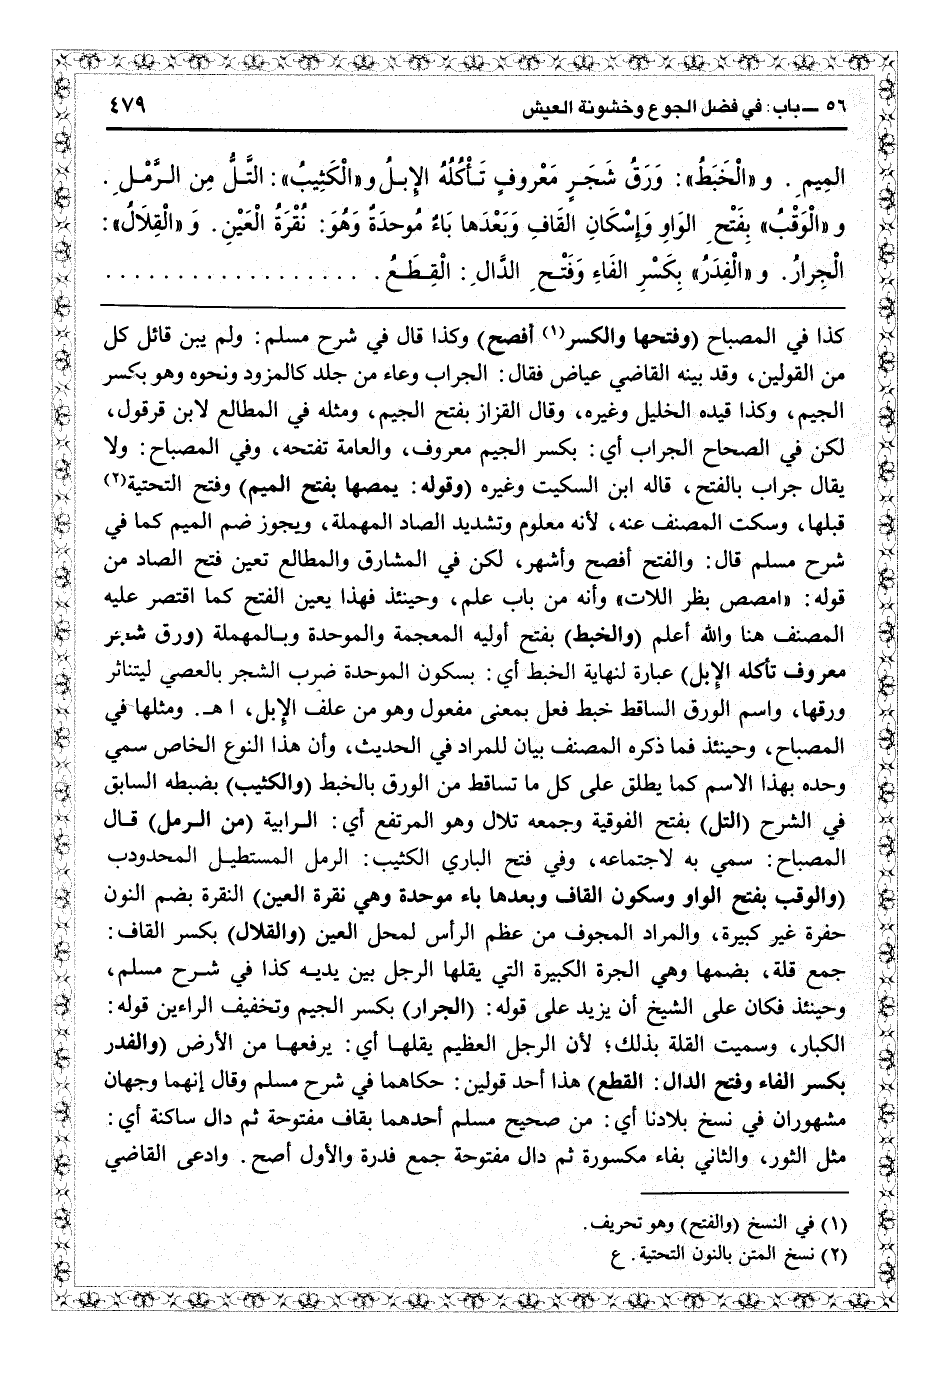 ٥٦ ــ باب: في فضل الجوع وخشونة العيش ٤٧٩
المِيمِ. و «الْخَبَطُ»: وَرَقُ شَجَرٍ مَعْروفٍ تَأْكُلُهُ الإِبلُ و«الْكَثِيبُ»: التَّلُّ مِن الرَّمْلِ.
و «الْوَقْبُ» بِفَتْحِ الوَاوِ وَإِسْكَانِ القَافِ وَبَعْدَها بَاءٌ مُوحدَةٌ وَهُوَ: نُقْرَةُ الْعَيْنِ. وَ «القِلَالُ»:
الْجِرارُ. و «الْفِدَرُ» بِكَسْرِ الفَاءِ وَفَتْحِ الدَّال: الْقِطَعُ. . . . . . . . . . . . . . . . . .
كذا في المصباح (وفتحها والكسر(١) أفصح) وكذا قال في شرح مسلم: ولم يبن قائل كل
من القولين، وقد بينه القاضي عياض فقال: الجراب وعاء من جلد كالمزود ونحوه وهو بكسر
الجيم، وكذا قيده الخليل وغيره، وقال القزاز بفتح الجيم، ومثله في المطالع لابن قرقول،
لكن في الصحاح الجراب أي: بكسر الجيم معروف، والعامة تفتحه، وفي المصباح: ولا
يقال جراب بالفتح، قاله ابن السكيت وغيره (وقوله: يمصها بفتح الميم) وفتح التحتية(٢)
قبلها، وسكت المصنف عنه، لأنه معلوم وتشديد الصاد المهملة، ويجوز ضم الميم كما في
شرح مسلم قال: والفتح أفصح وأشهر، لكن في المشارق والمطالع تعين فتح الصاد من
قوله: «امصص بظر اللات» وأنه من باب علم، وحينئذ فهذا يعين الفتح كما اقتصر عليه
المصنف هنا والله أعلم (والخبط) بفتح أوليه المعجمة والموحدة وبالمهملة (ورق شجر
معروف تأكله الإبل) عبارة لنهاية الخبط أي: بسكون الموحدة ضرب الشجر بالعصي ليتناثر
ورقها، واسم الورق الساقط خبط فعل بمعنى مفعول وهو من علف الإبل، ا هـ. ومثلها في
المصباح، وحينئذ فما ذكره المصنف بيان للمراد في الحديث، وأن هذا النوع الخاص سمي
وحده بهذا الاسم كما يطلق على كل ما تساقط من الورق بالخبط (والكثيب) بضبطه السابق
في الشرح (التل) بفتح الفوقية وجمعه تلال وهو المرتفع أي: الرابية (من الرمل) قال
المصباح: سمي به لاجتماعه، وفي فتح الباري الكثيب: الرمل المستطيل المحدودب
(والوقب بفتح الواو وسكون القاف وبعدها باء موحدة وهي نقرة العين) النقرة بضم النون
حفرة غير كبيرة، والمراد المجوف من عظم الرأس لمحل العين (والقلال) بكسر القاف:
جمع قلة، بضمها وهي الجرة الكبيرة التي يقلها الرجل بين يديه كذا في شرح مسلم،
وحينئذ فكان على الشيخ أن يزيد على قوله: (الجرار) بكسر الجيم وتخفيف الراءين قوله:
الكبار، وسميت القلة بذلك؛ لأن الرجل العظيم يقلها أي: يرفعها من الأرض (والفدر
بكسر الفاء وفتح الدال: القطع) هذا أحد قولين: حكاهما في شرح مسلم وقال إنهما وجهان
مشهوران في نسخ بلادنا أي: من صحيح مسلم أحدهما بقاف مفتوحة ثم دال ساكنة أي:
مثل الثور، والثاني بفاء مكسورة ثم دال مفتوحة جمع فدرة والأول أصح. وادعى القاضي
(١) في النسخ (والفتح) وهو تحريف.
(٢) نسخ المتن بالنون التحتية. ع